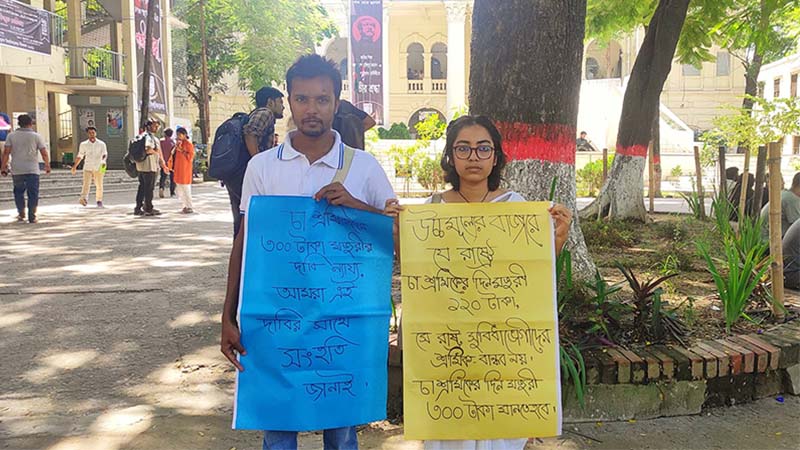 চা শ্রমিকদের
৩০০ টাকা মজুরীর
দাবি ন্যায্য,
আমরা এই
দাবির সাথে
সংহতি
জানাই।
উচ্চমূল্যের বাজারে
যে রাষ্ট্রে
চা শ্রমিকের দিনমজুরী
১২০ টাকা,
সে রাষ্ট্র সুবিধাভোগীদের
শ্রমিক বান্ধব নয়।
চা শ্রমিকের দিন মজুরী
৩০০ টাকা মানতে হবে।